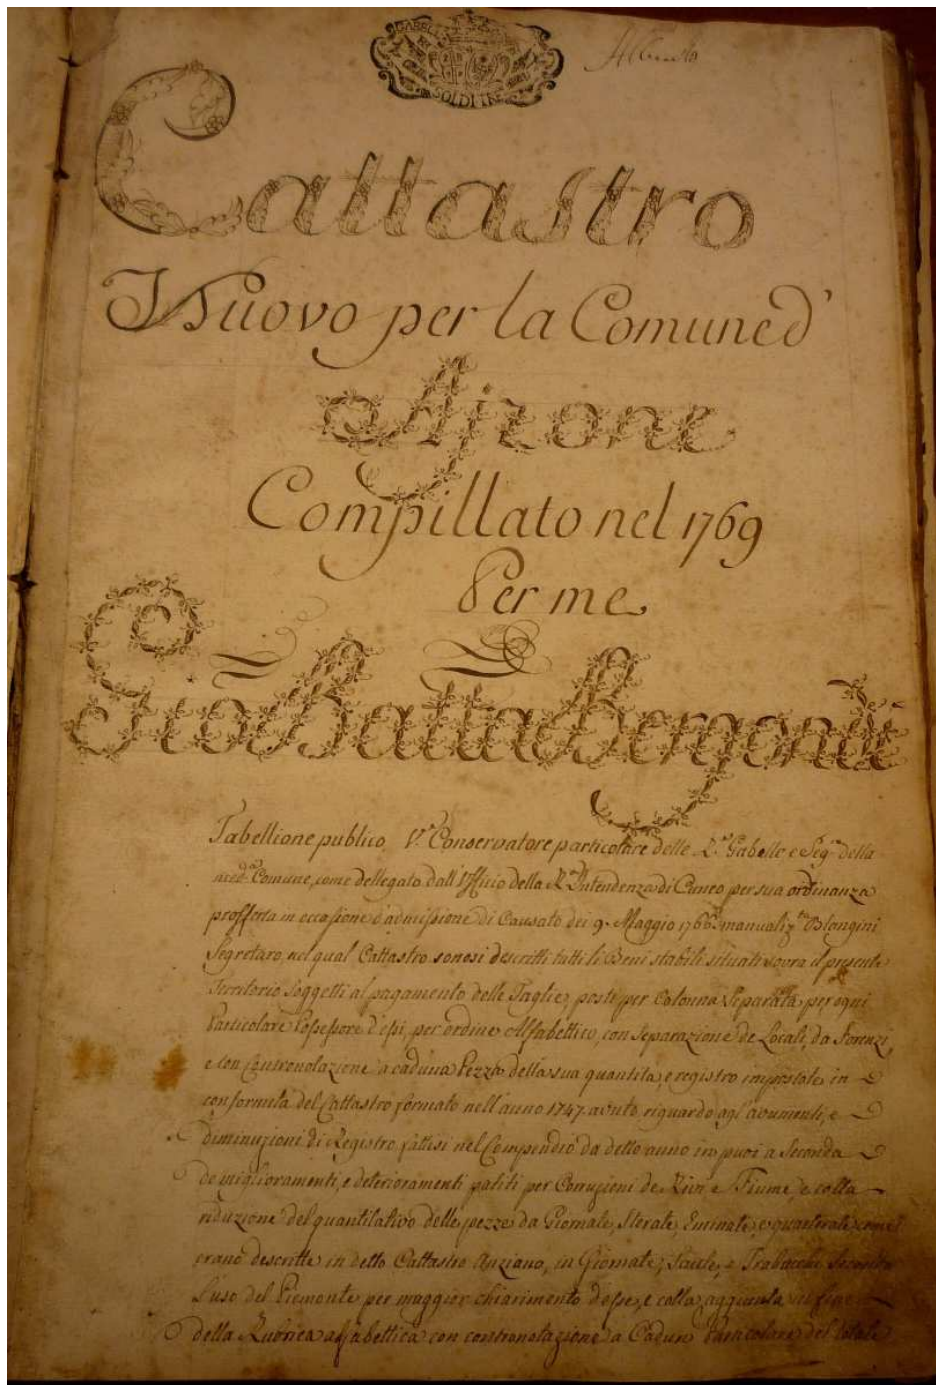 GABELL
SOLDI TRE
Cattastro
Nuovo per la Comune d'
Aisone
Compillato nel 1769
Per me
Gio Batta Bergondi
Tabellione publico, V.º Conservatore particolare delle R.e Gabelle e Seg.º della
med.ª Comune, come dellegato dall'Uffizio della R.ª Intendenza di Cuneo per sua ordinanza
profferta in occasione d'admissione di Causato dei 9. Maggio manualiz.ta Blangini
Segretaro, nel qual Cattastro sonosi descritti tutti li Beni stabili situati sovra il presente
Territorio soggetti al pagamento delle Taglie, posti per Colonna Separata, per ogni
Particolare Possessore d'essi, per ordine Alfabettico, con separazione de Locali, da Forenzi,
e con Contronotazione a caduna Pezza della sua quantita, e registro impostale, in
conformita del Cattastro formato nell'anno 1747. avuto riguardo agl'aoumenti, e
diminuzioni di Registro fattisi nel Compendio da detto anno in puoi a Seconda
de miglioramenti, e deterioramenti patiti per Corruzioni de Rivi e Fiume, e colla
riduzione del quantitativo delle pezze da Giornale, Sterate, Eminate, e quarterate, come
erano descritte in detto Cattastro Anziano, in Giornate, Tavole, e Trabucchi Secondo
l'uso del Piemonte per maggior chiarimento d'esse, e colla aggiunta in fine
della Rubrica alfabettica con contronotazione a Cadun Particolare del totale